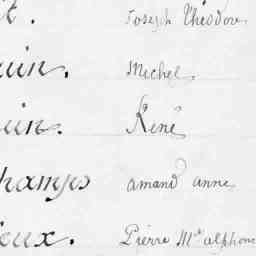 t. Joseph Théodore
uin. Michel.
uin. René
hamps amand anne
eux. Pierre Mie alphons